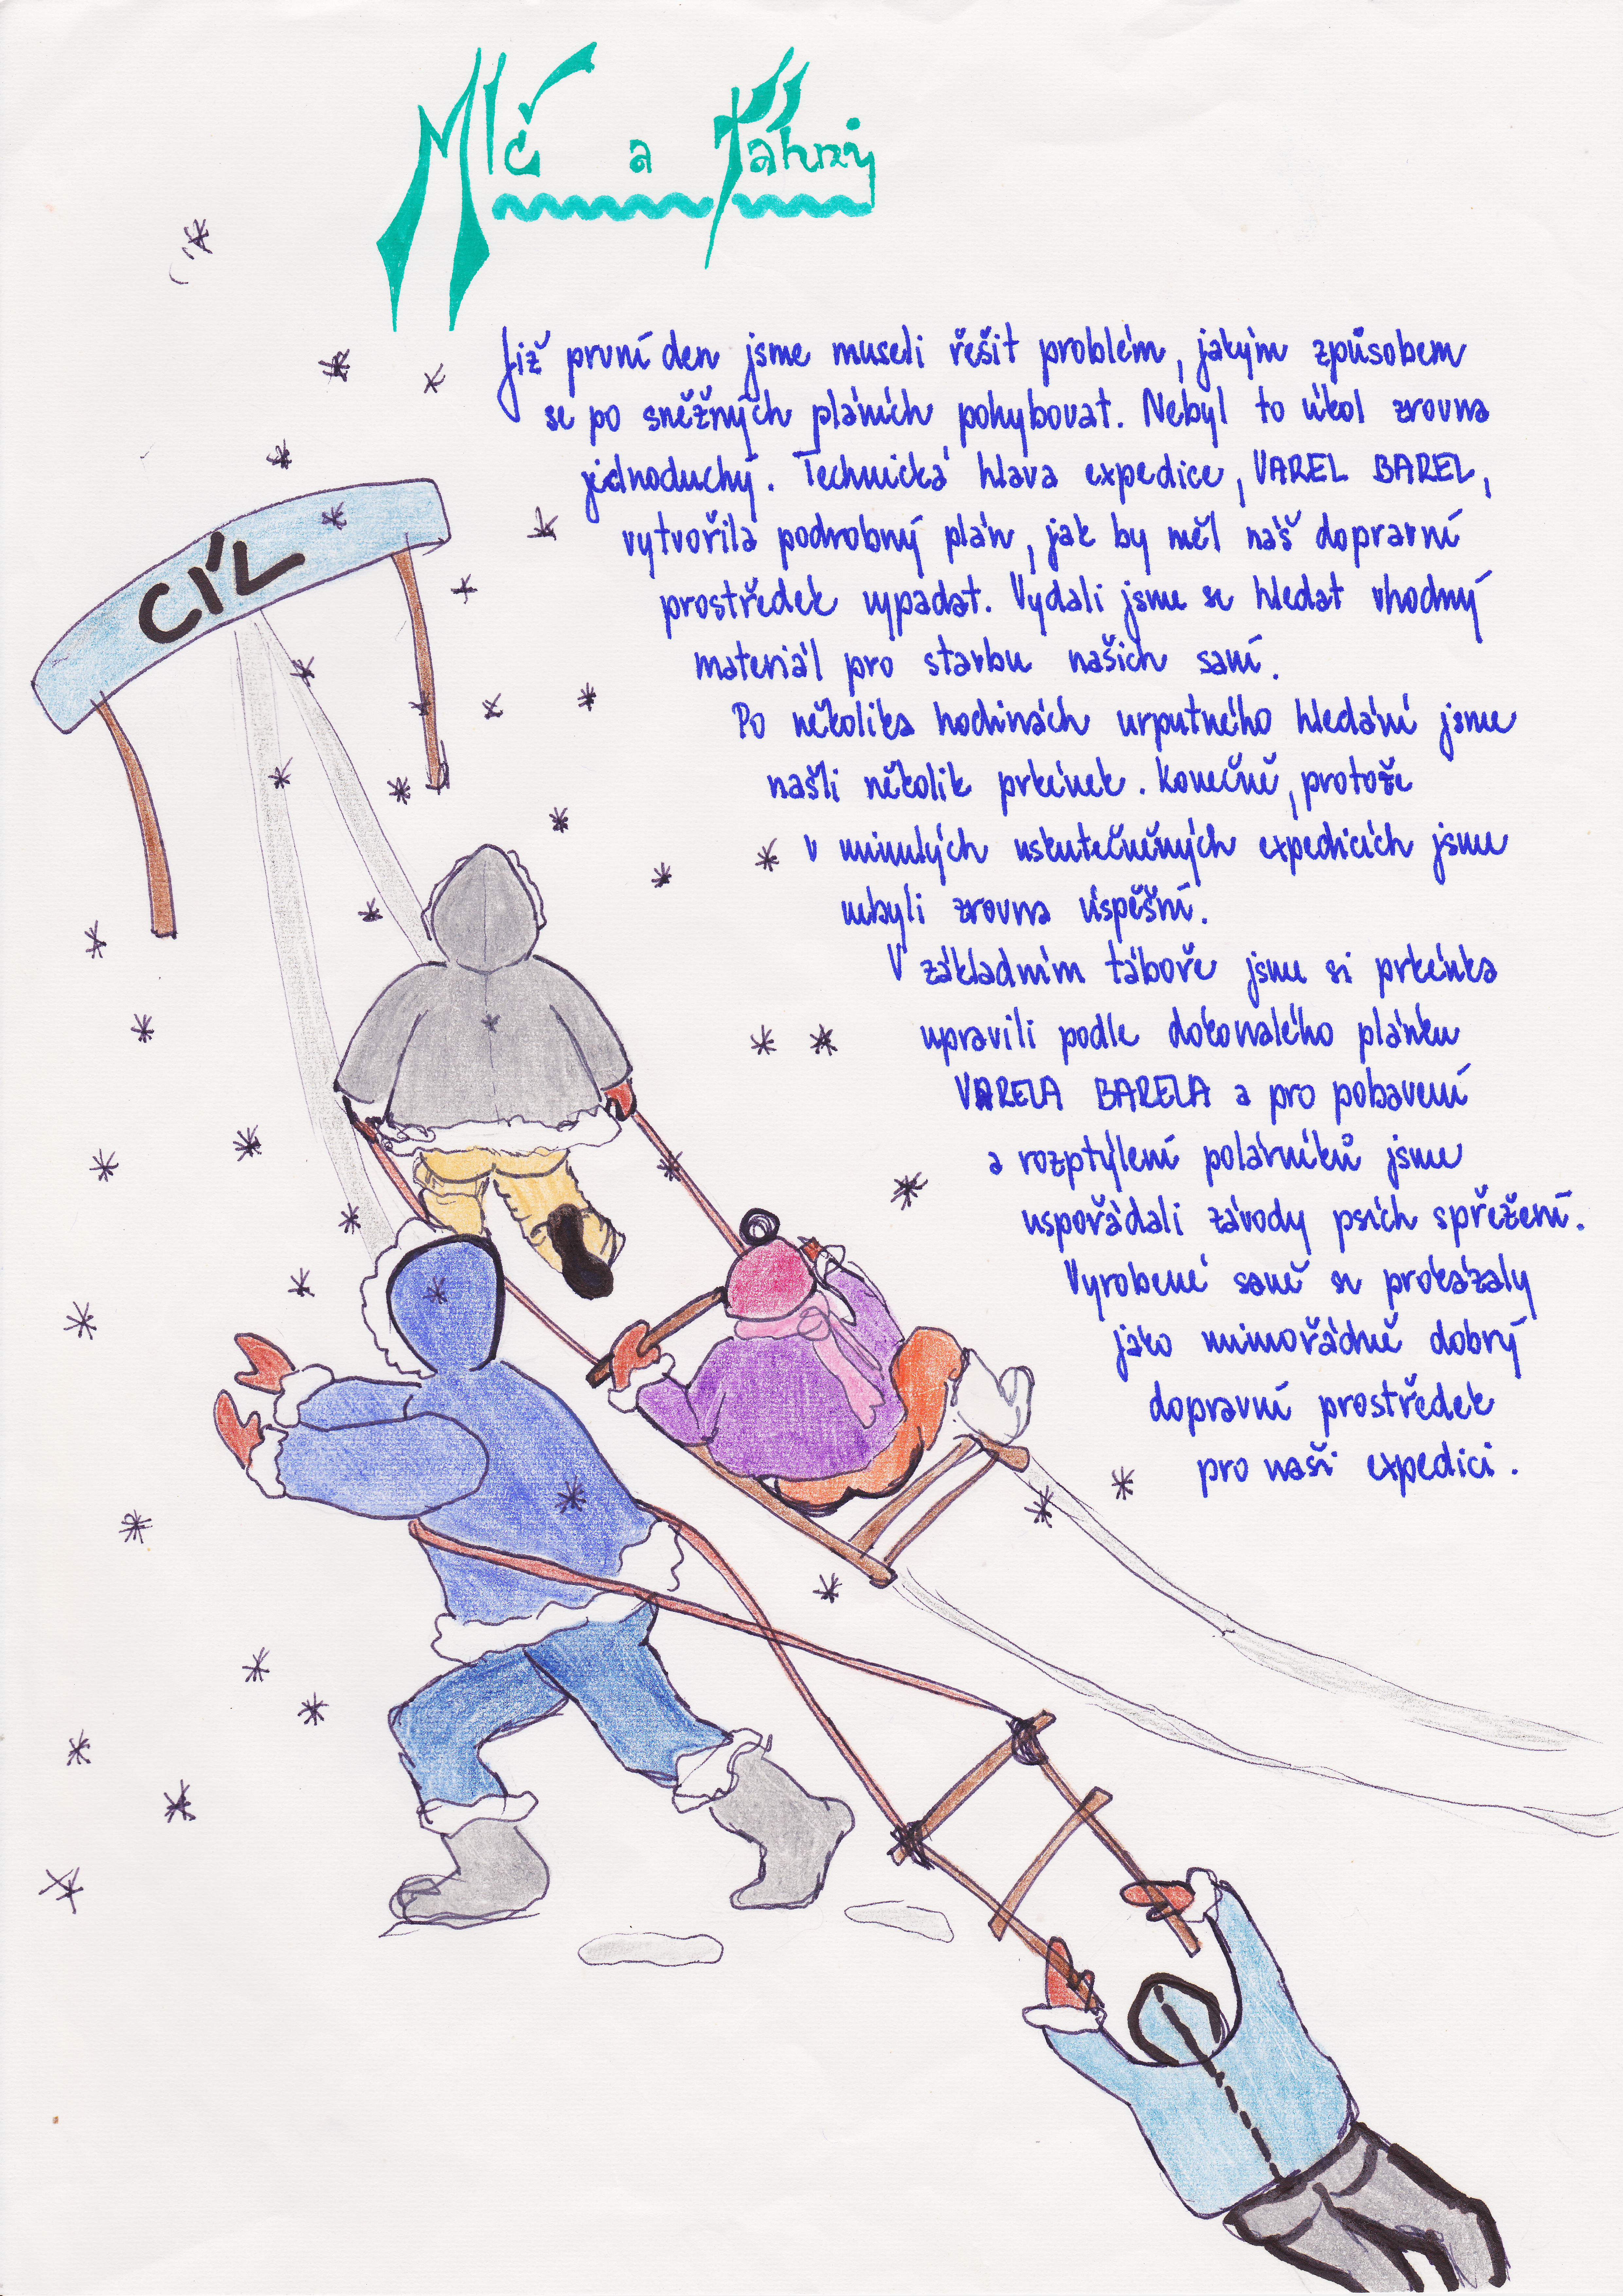 Mlč a Táhni
Již první den jsme museli řešit problém, jakým způsobem
se po sněžných pláních pohybovat. Nebyl to úkol zrovna
jednoduchý. Technická hlava expedice, VAREL BAREL,
vytvořila podrobný plán, jak by měl náš dopravní
prostředek vypadat. Vydali jsme se hledat vhodný
materiál pro stavbu našich saní.
Po několika hodinách urputného hledání jsme
našli několik prkének. Konečně, protože
v minulých uskutečněných expedicích jsme
nebyli zrovna úspěšní.
V základním táboře jsme si prkénka
upravili podle dokonalého plánku
VARELA BARELA a pro pobavení
a rozptýlení polárníků jsme
uspořádali závody psích spřežení.
Vyrobené saně se prokázaly
jako mimořádně dobrý
dopravní prostředek
pro naši expedici.
CÍL